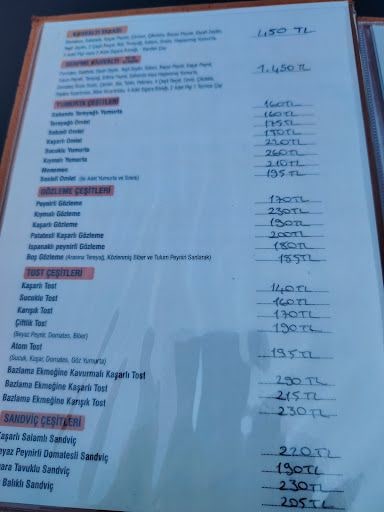 KAHVALTI TABAĞI 450 TL
SERPME KAHVALTI 1.450 TL
YUMURTA ÇEŞİTLERİ
Sahanda Tereyağlı Yumurta 160TL
Tereyağlı Omlet 160TL
Sebzeli Omlet 175TL
Kaşarlı Omlet 190TL
Sucuklu Yumurta 220TL
Kıymalı Yumurta 260TL
Menemen 210TL
Sade Omlet (İki Adet Yumurta ve Sütle) 195TL
GÖZLEME ÇEŞİTLERİ
Peynirli Gözleme 170TL
Kıymalı Gözleme 230TL
Kaşarlı Gözleme 190TL
Patatesli Kaşarlı Gözleme 200TL
Ispanaklı peynirli Gözleme 180TL
Boş Gözleme (Arasına Tereyağ, Közlenmiş Biber ve Tulum Peyniri Sarılarak) 185TL
TOST ÇEŞİTLERİ
Kaşarlı Tost 140TL
Sucuklu Tost 160TL
Karışık Tost 170TL
Çiftlik Tost 190TL
(Beyaz Peynir, Domates, Biber)
Atom Tost 195TL
(Sucuk, Kaşar, Domates, Göz Yumurta)
Bazlama Ekmeğine Kavurmalı Kaşarlı Tost 290TL
Bazlama Ekmeğine Kaşarlı Tost 215TL
Bazlama Ekmeğine Karışık Tost 230TL
SANDVİÇ ÇEŞİTLERİ
Kaşarlı Salamlı Sandviç 220TL
eyaz Peynirli Domatesli Sandviç 190TL
ara Tavuklu Sandviç 230TL
Balıklı Sandviç 205TL